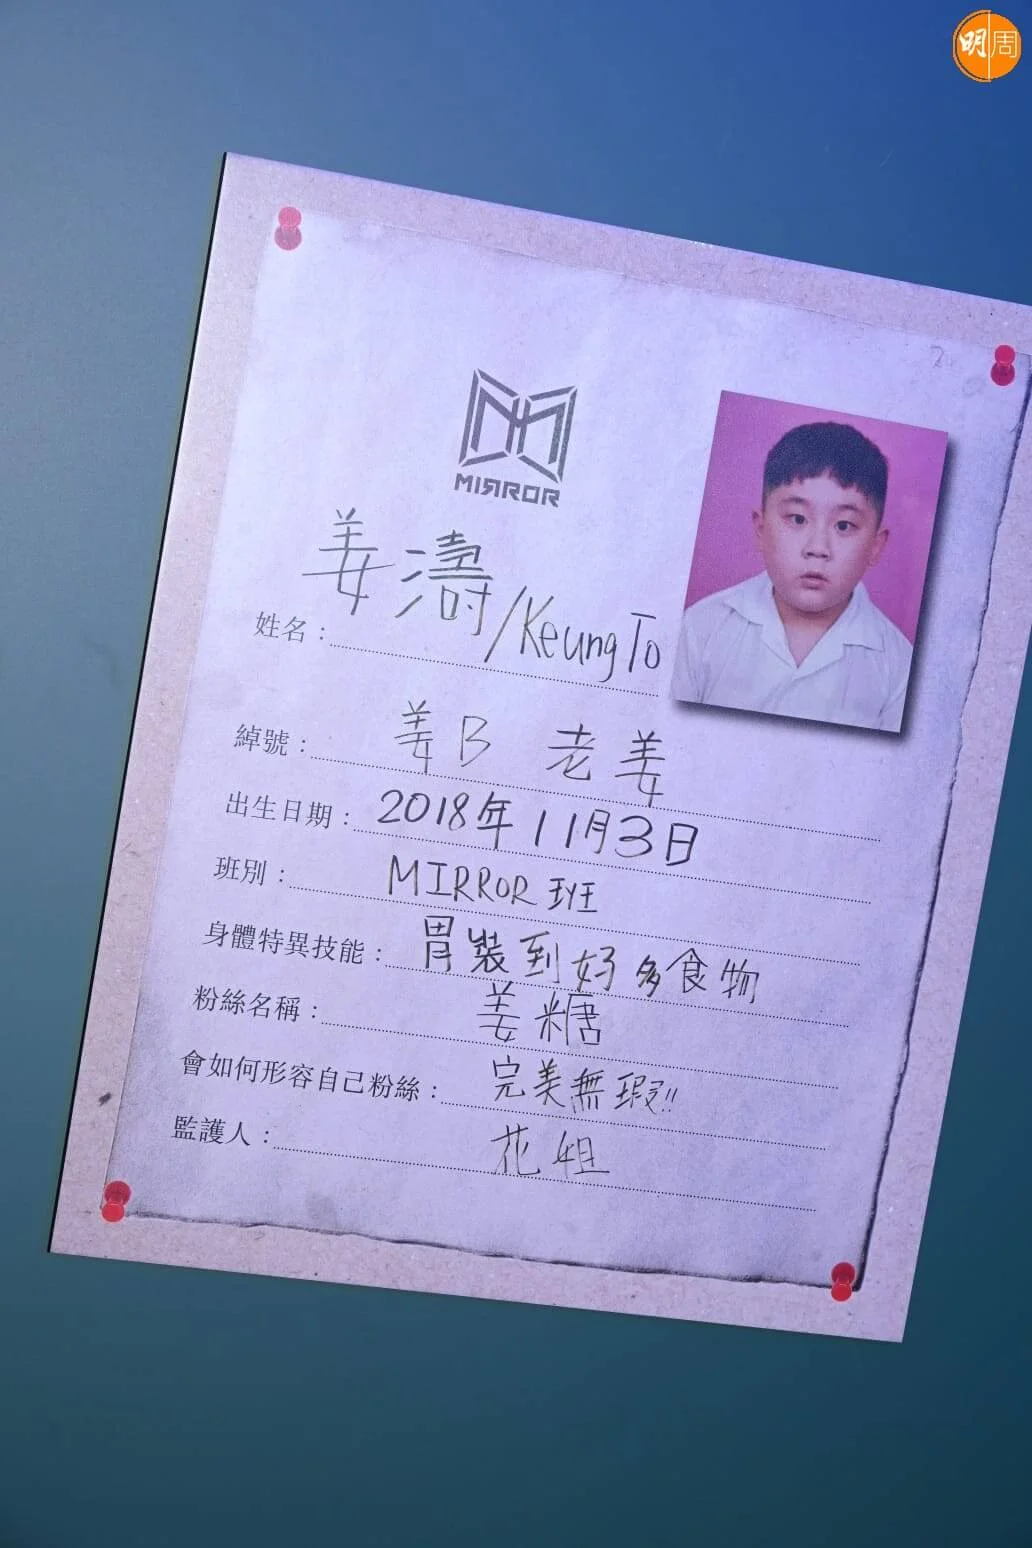 明周
MIRROR
姓名：姜濤/Keung To
綽號：姜B 老姜
出生日期：2018年11月3日
班別：MIRROR班
身體特異技能：胃裝到好多食物
粉絲名稱：姜糖
會如何形容自己粉絲：完美無瑕!!
監護人：花姐